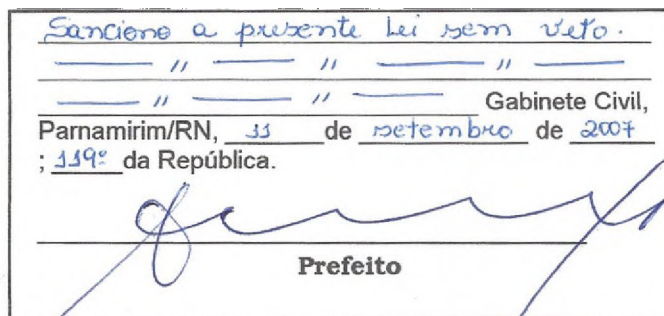 Sanciono a presente Lei sem veto.
—— // —— // —— // ——
—— // —— // —— Gabinete Civil,
Parnamirim/RN, 11 de setembro de 2007
; 119º da República.
Prefeito